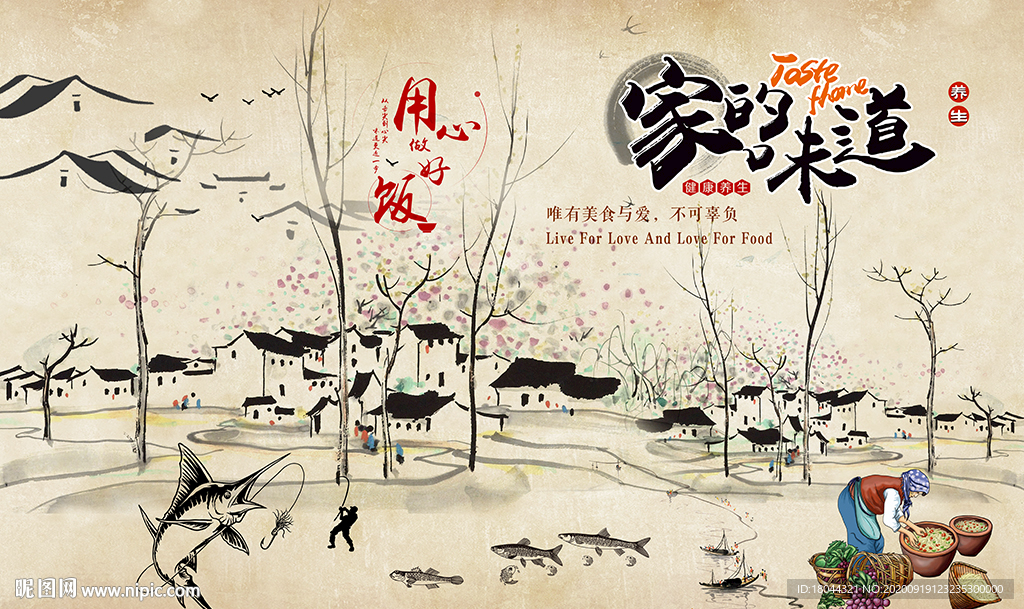 家的味道
Taste
Home
养生
健康养生
唯有美食与爱，不可辜负
Live For Love And Love For Food
用心
做好
饭
从舌尖到心尖
味道更近一步
昵图网 www.nipic.com
ID:18044321 NO:20200919123235300000